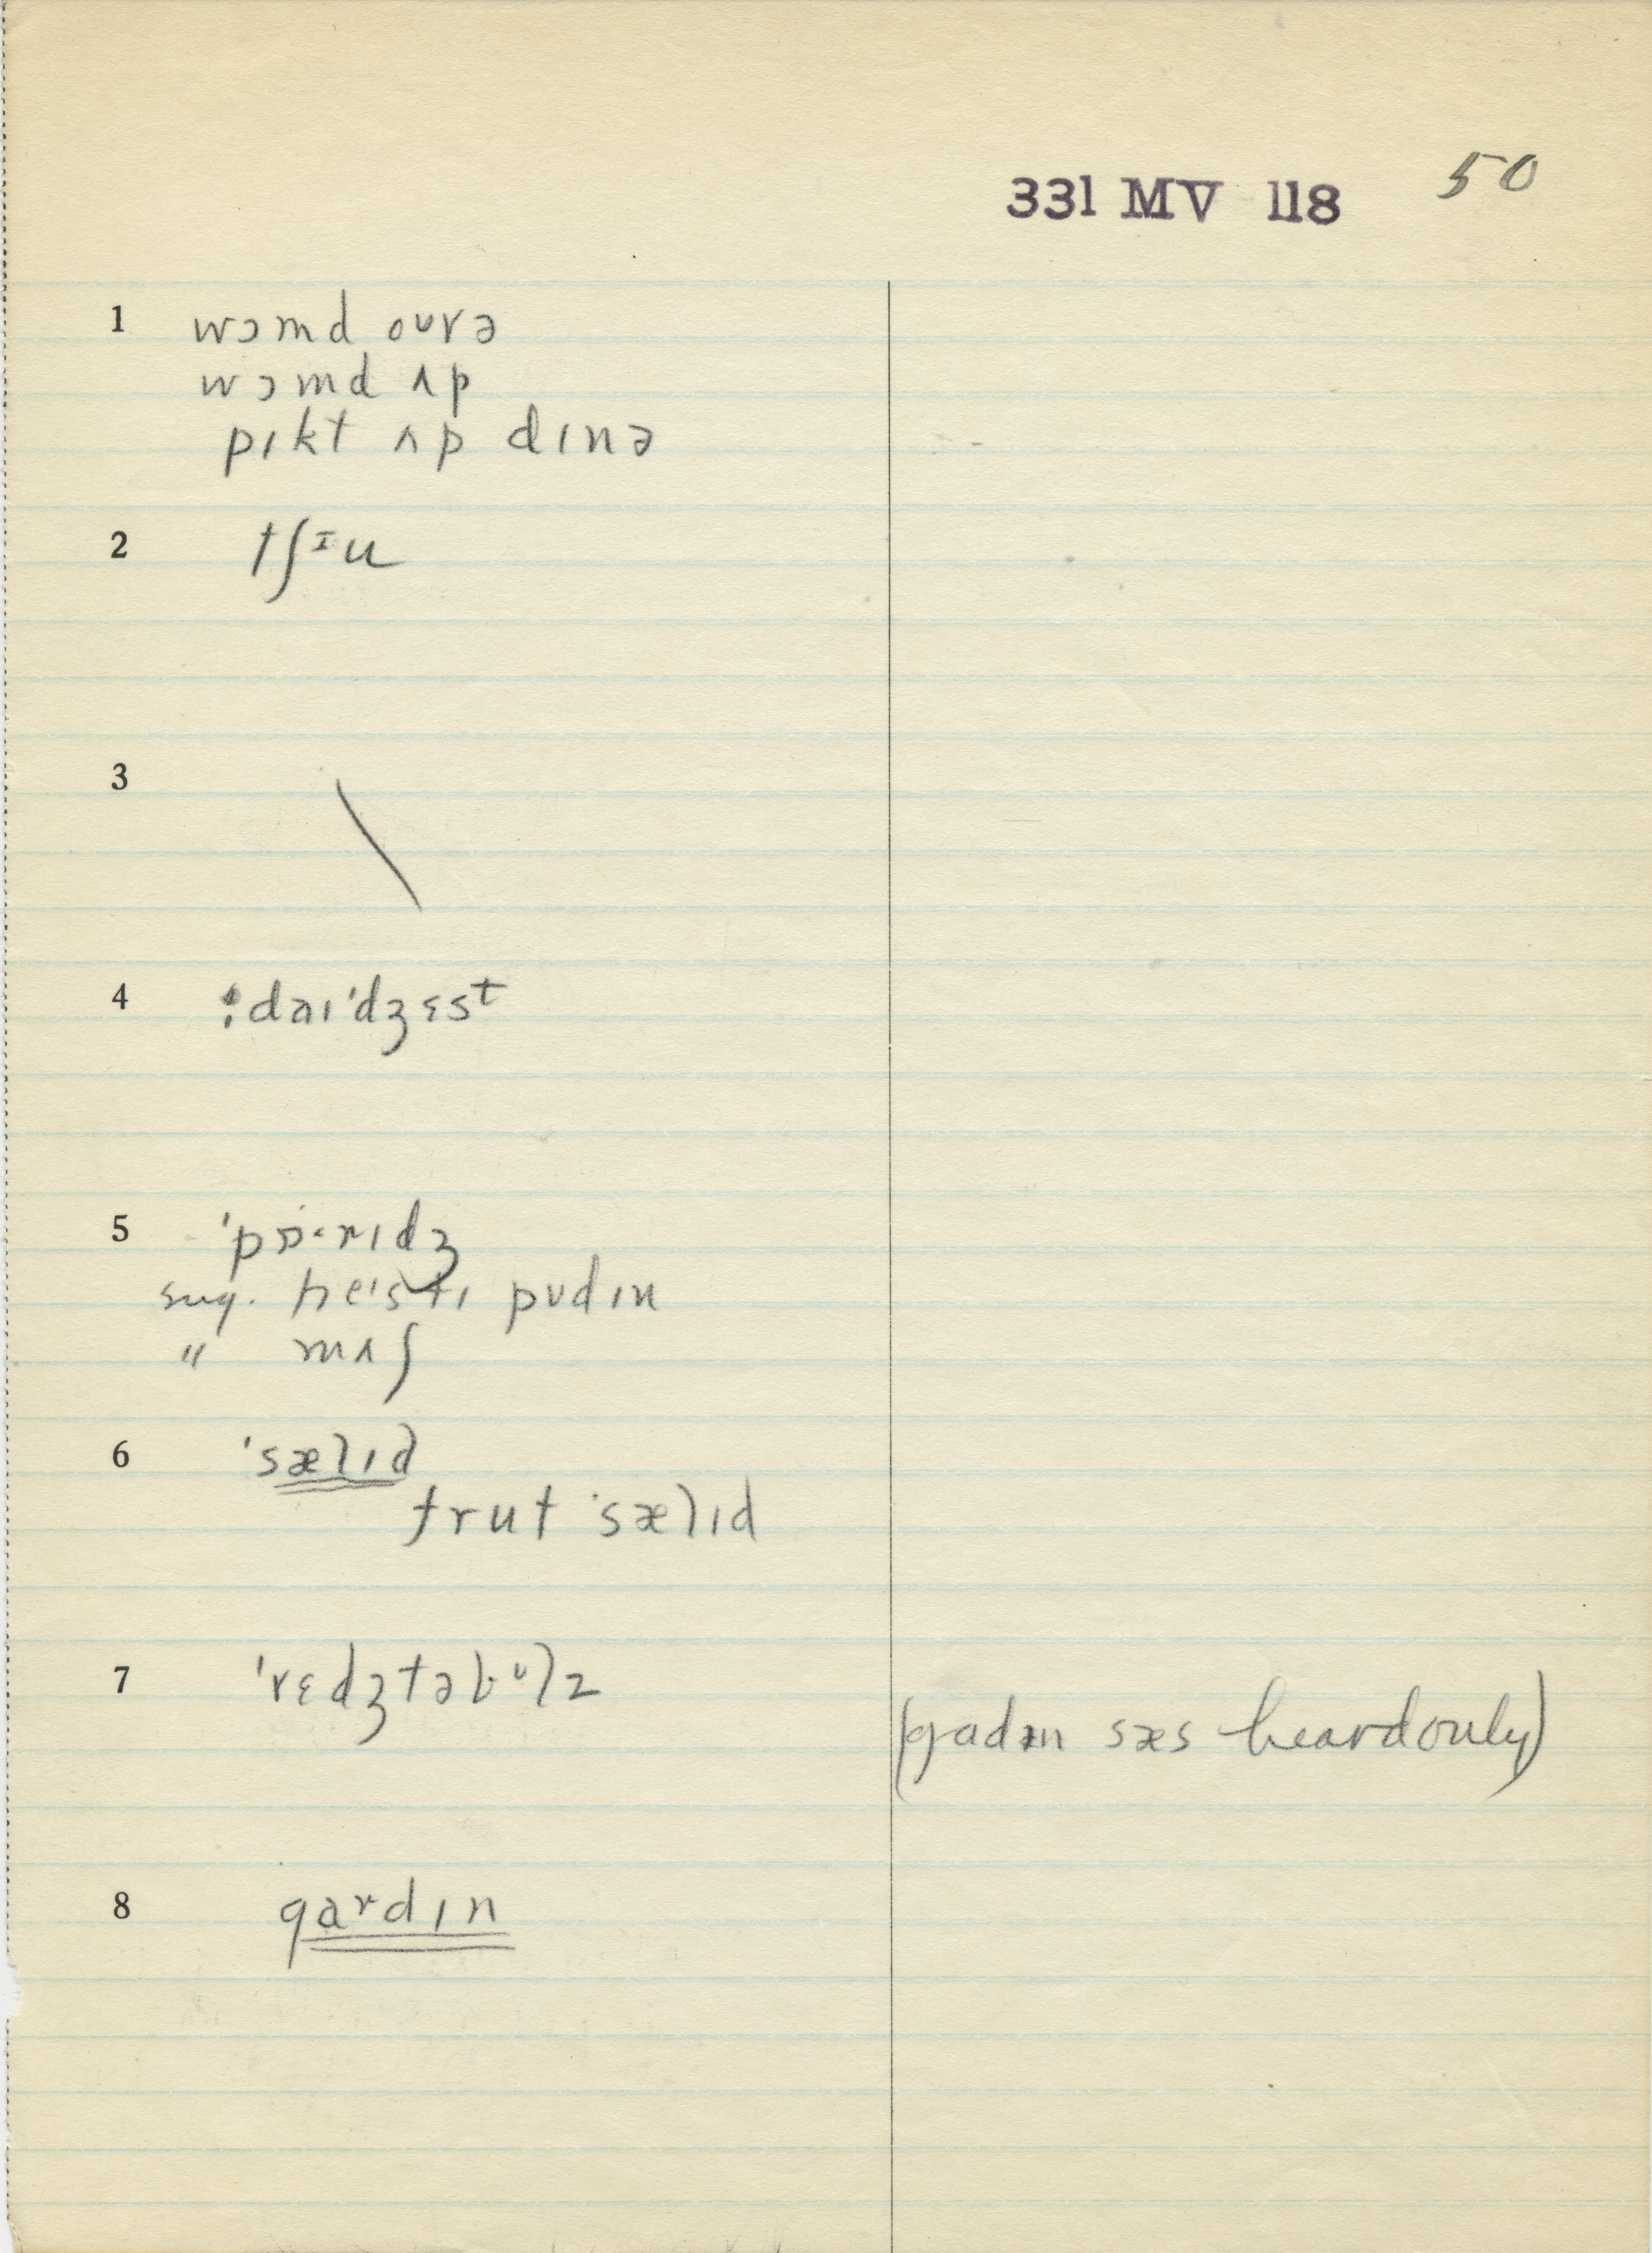 331 MV 118 50
1 wɔmd oʊvə
wɔmd ʌp
pɪkt ʌp dɪnə
2 tʃᶦu
3
4 ⁏daɪˈdʒɛst
5 ˈpɒ·rɪdʒ
sug. heˈstɪ pʊdɪn
" mʌʃ
6 ˈsælɪd
frut ˈsælɪd
7 ˈvɛdʒtəbᶷlz
(gadɪn sæs heard only)
8 gaʳdɪn